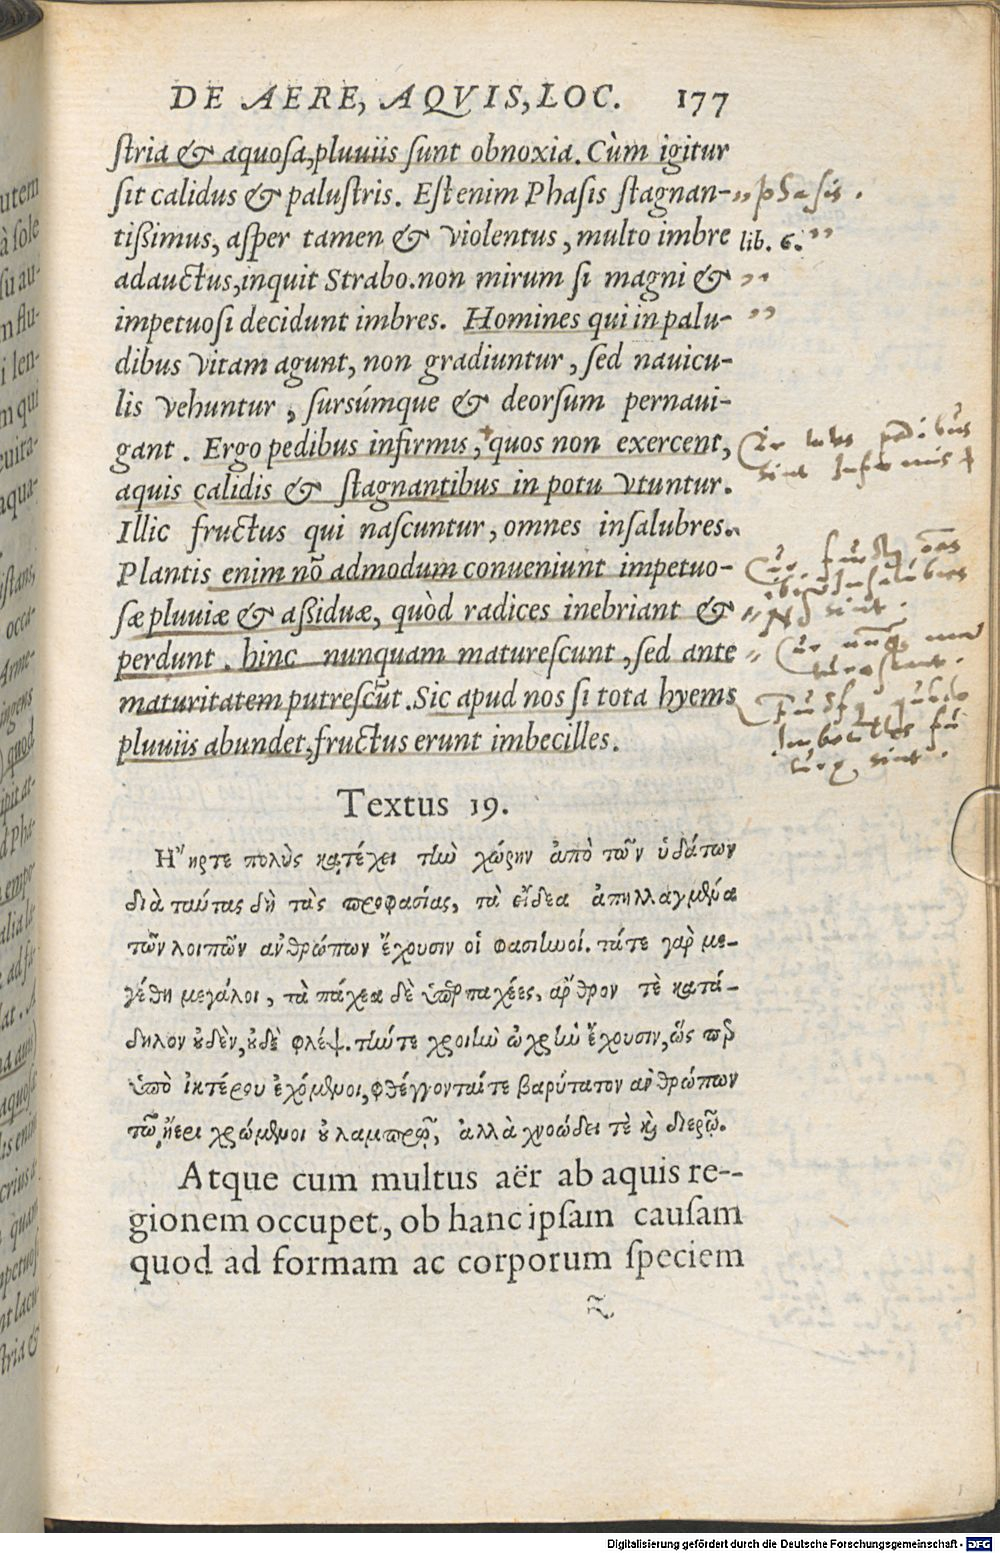 DE AERE, AQVIS, LOC. 177
ſtria & aquoſa, pluuiis ſunt obnoxia. Cùm igitur
ſit calidus & paluſtris. Eſt enim Phaſis ſtagnan-
phasis.
tißimus, aſper tamen & violentus, multo imbre
lib. 6.
adauctus, inquit Strabo. non mirum ſi magni &
impetuoſi decidunt imbres. Homines qui in palu-
dibus vitam agunt, non gradiuntur, ſed nauicu-
lis vehuntur, ſursúmque & deorſum pernaui-
gant. Ergo pedibus infirmis, quos non exercent,
aquis calidis & ſtagnantibus in potu vtuntur.
Illic fructus qui naſcuntur, omnes inſalubres.
Plantis enim nõ admodum conueniunt impetuo-
ſæ pluuiæ & aßiduæ, quòd radices inebriant &
perdunt. hinc nunquam matureſcunt, ſed ante
maturitatem putreſcũt. Sic apud nos ſi tota hyems
pluuiis abundet, fructus erunt imbecilles.
Textus 19.
Ἤ ηρτε πολὺς κατέχει τὴν χώρην ἀπὸ τῶν ὑδάτων
διὰ ταύτας δὴ τὰς προφασίας, τὰ εἴδεα ἀπηλλαγμένα
τῶν λοιπῶν ἀνθρώπων ἔχουσιν οἱ φασιηνοί. τάτε γὰρ με-
γέθη μεγάλοι, τὰ πάχεα δὲ ὑπὲρ παχέες, ἄρθρον τὲ κατά-
δηλον οὐδὲν, οὐδὲ φλέψ. τήντε χροιὴν ὠχρὴν ἔχουσιν, ὥς περ
ὑπὸ ἰκτέρου ἐχόμενοι, φθέγγονταίτε βαρύτατον ἀνθρώπων
τῷ ἠέρι χρώμενοι οὐ λαμπρῷ, ἀλλὰ χνοώδει τὲ καὶ διερῷ.
Atque cum multus aër ab aquis re-
gionem occupet, ob hanc ipſam cauſam
quod ad formam ac corporum ſpeciem
Digitalisierung gefördert durch die Deutsche Forschungsgemeinschaft - DFG